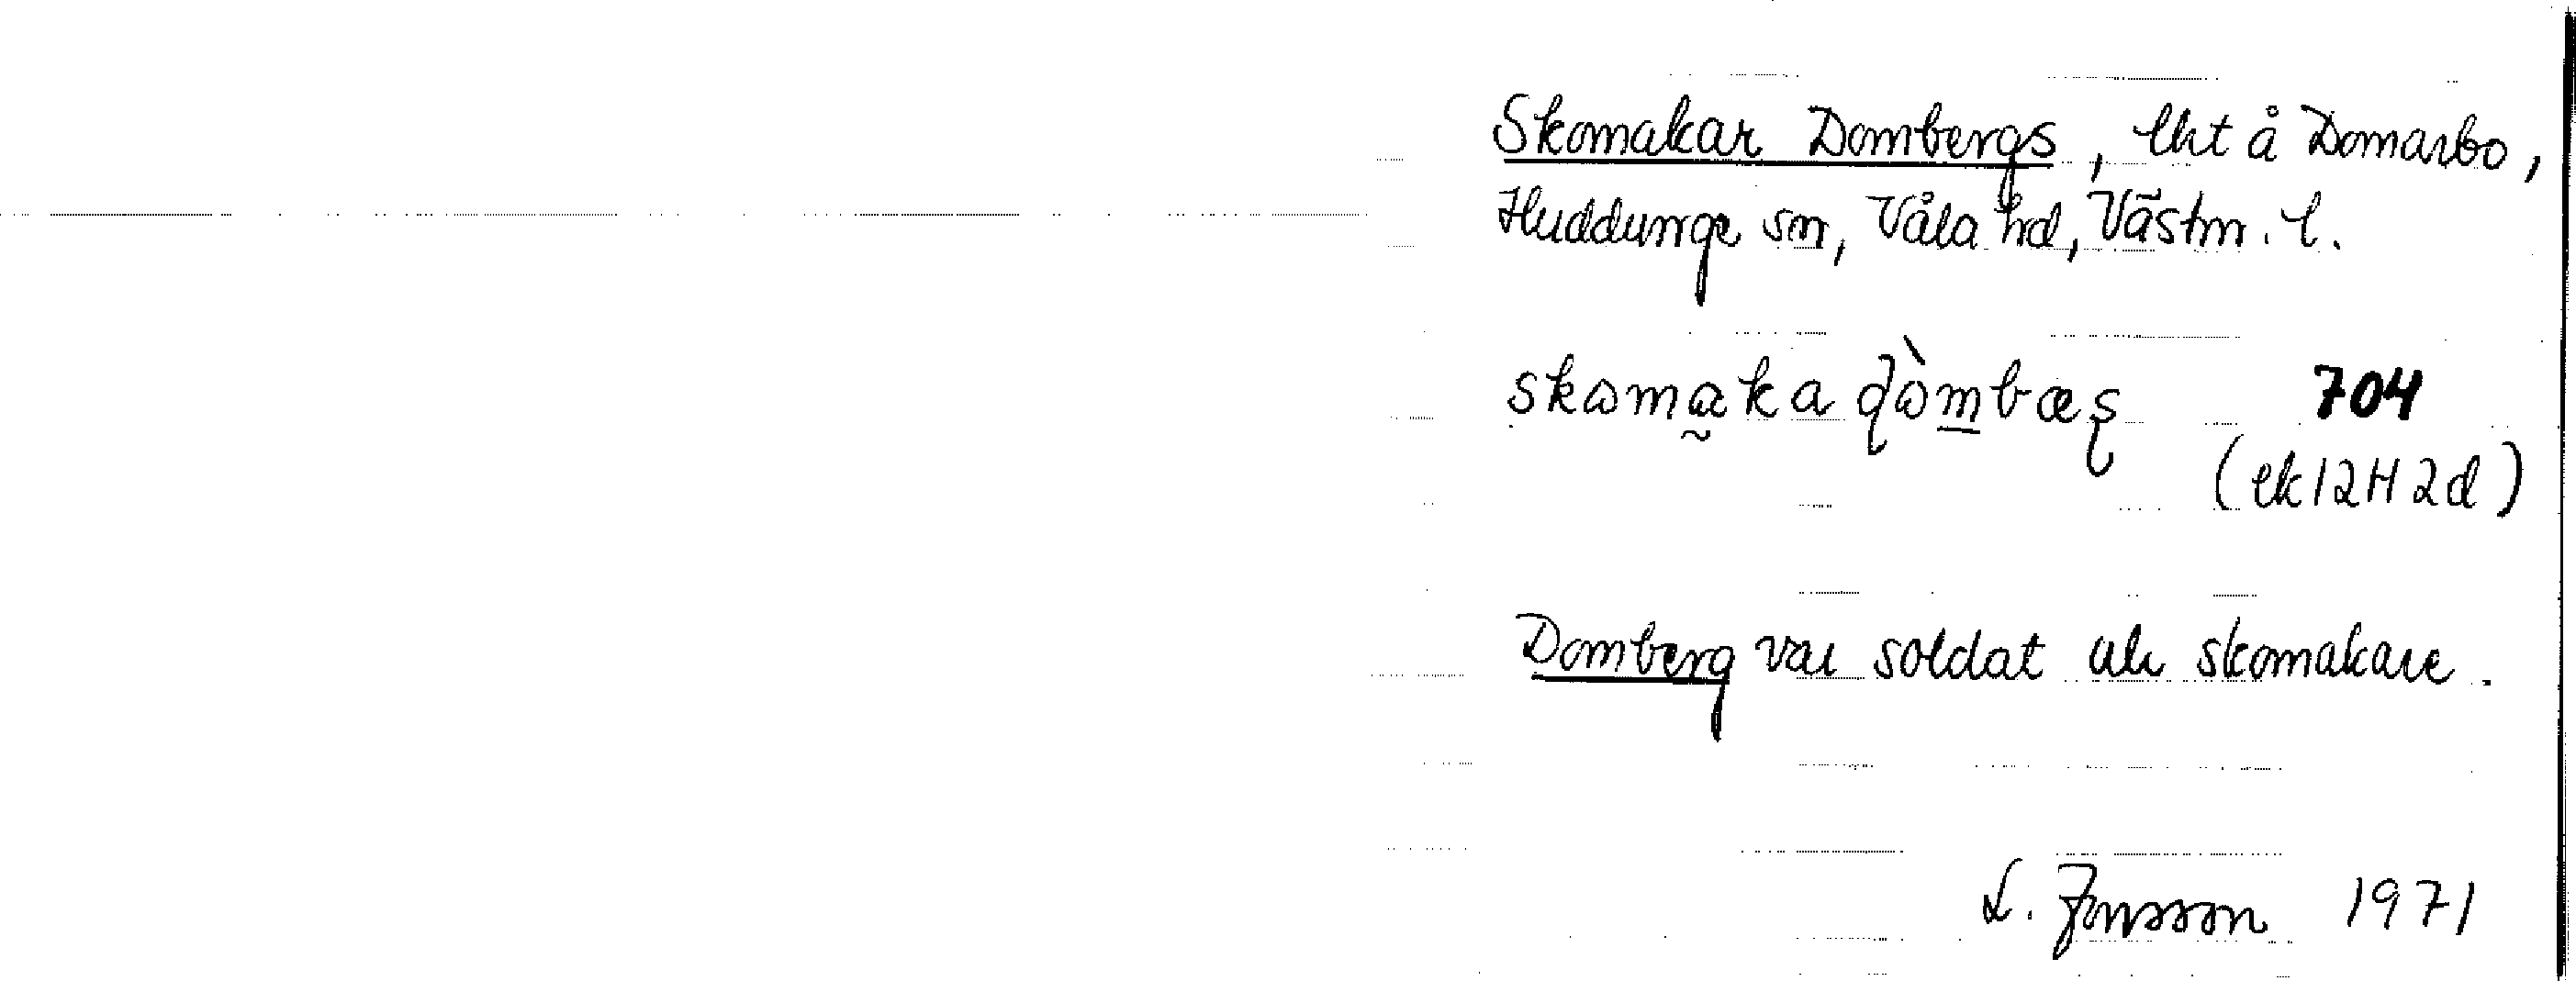 Skomakar Dombergs, lht å Domarbo,
Huddunge sn, Våla hd, Västm. l.
704
(ek 12H 2d)
Domberg var soldat och skomakare.
L. Jonsson 1971